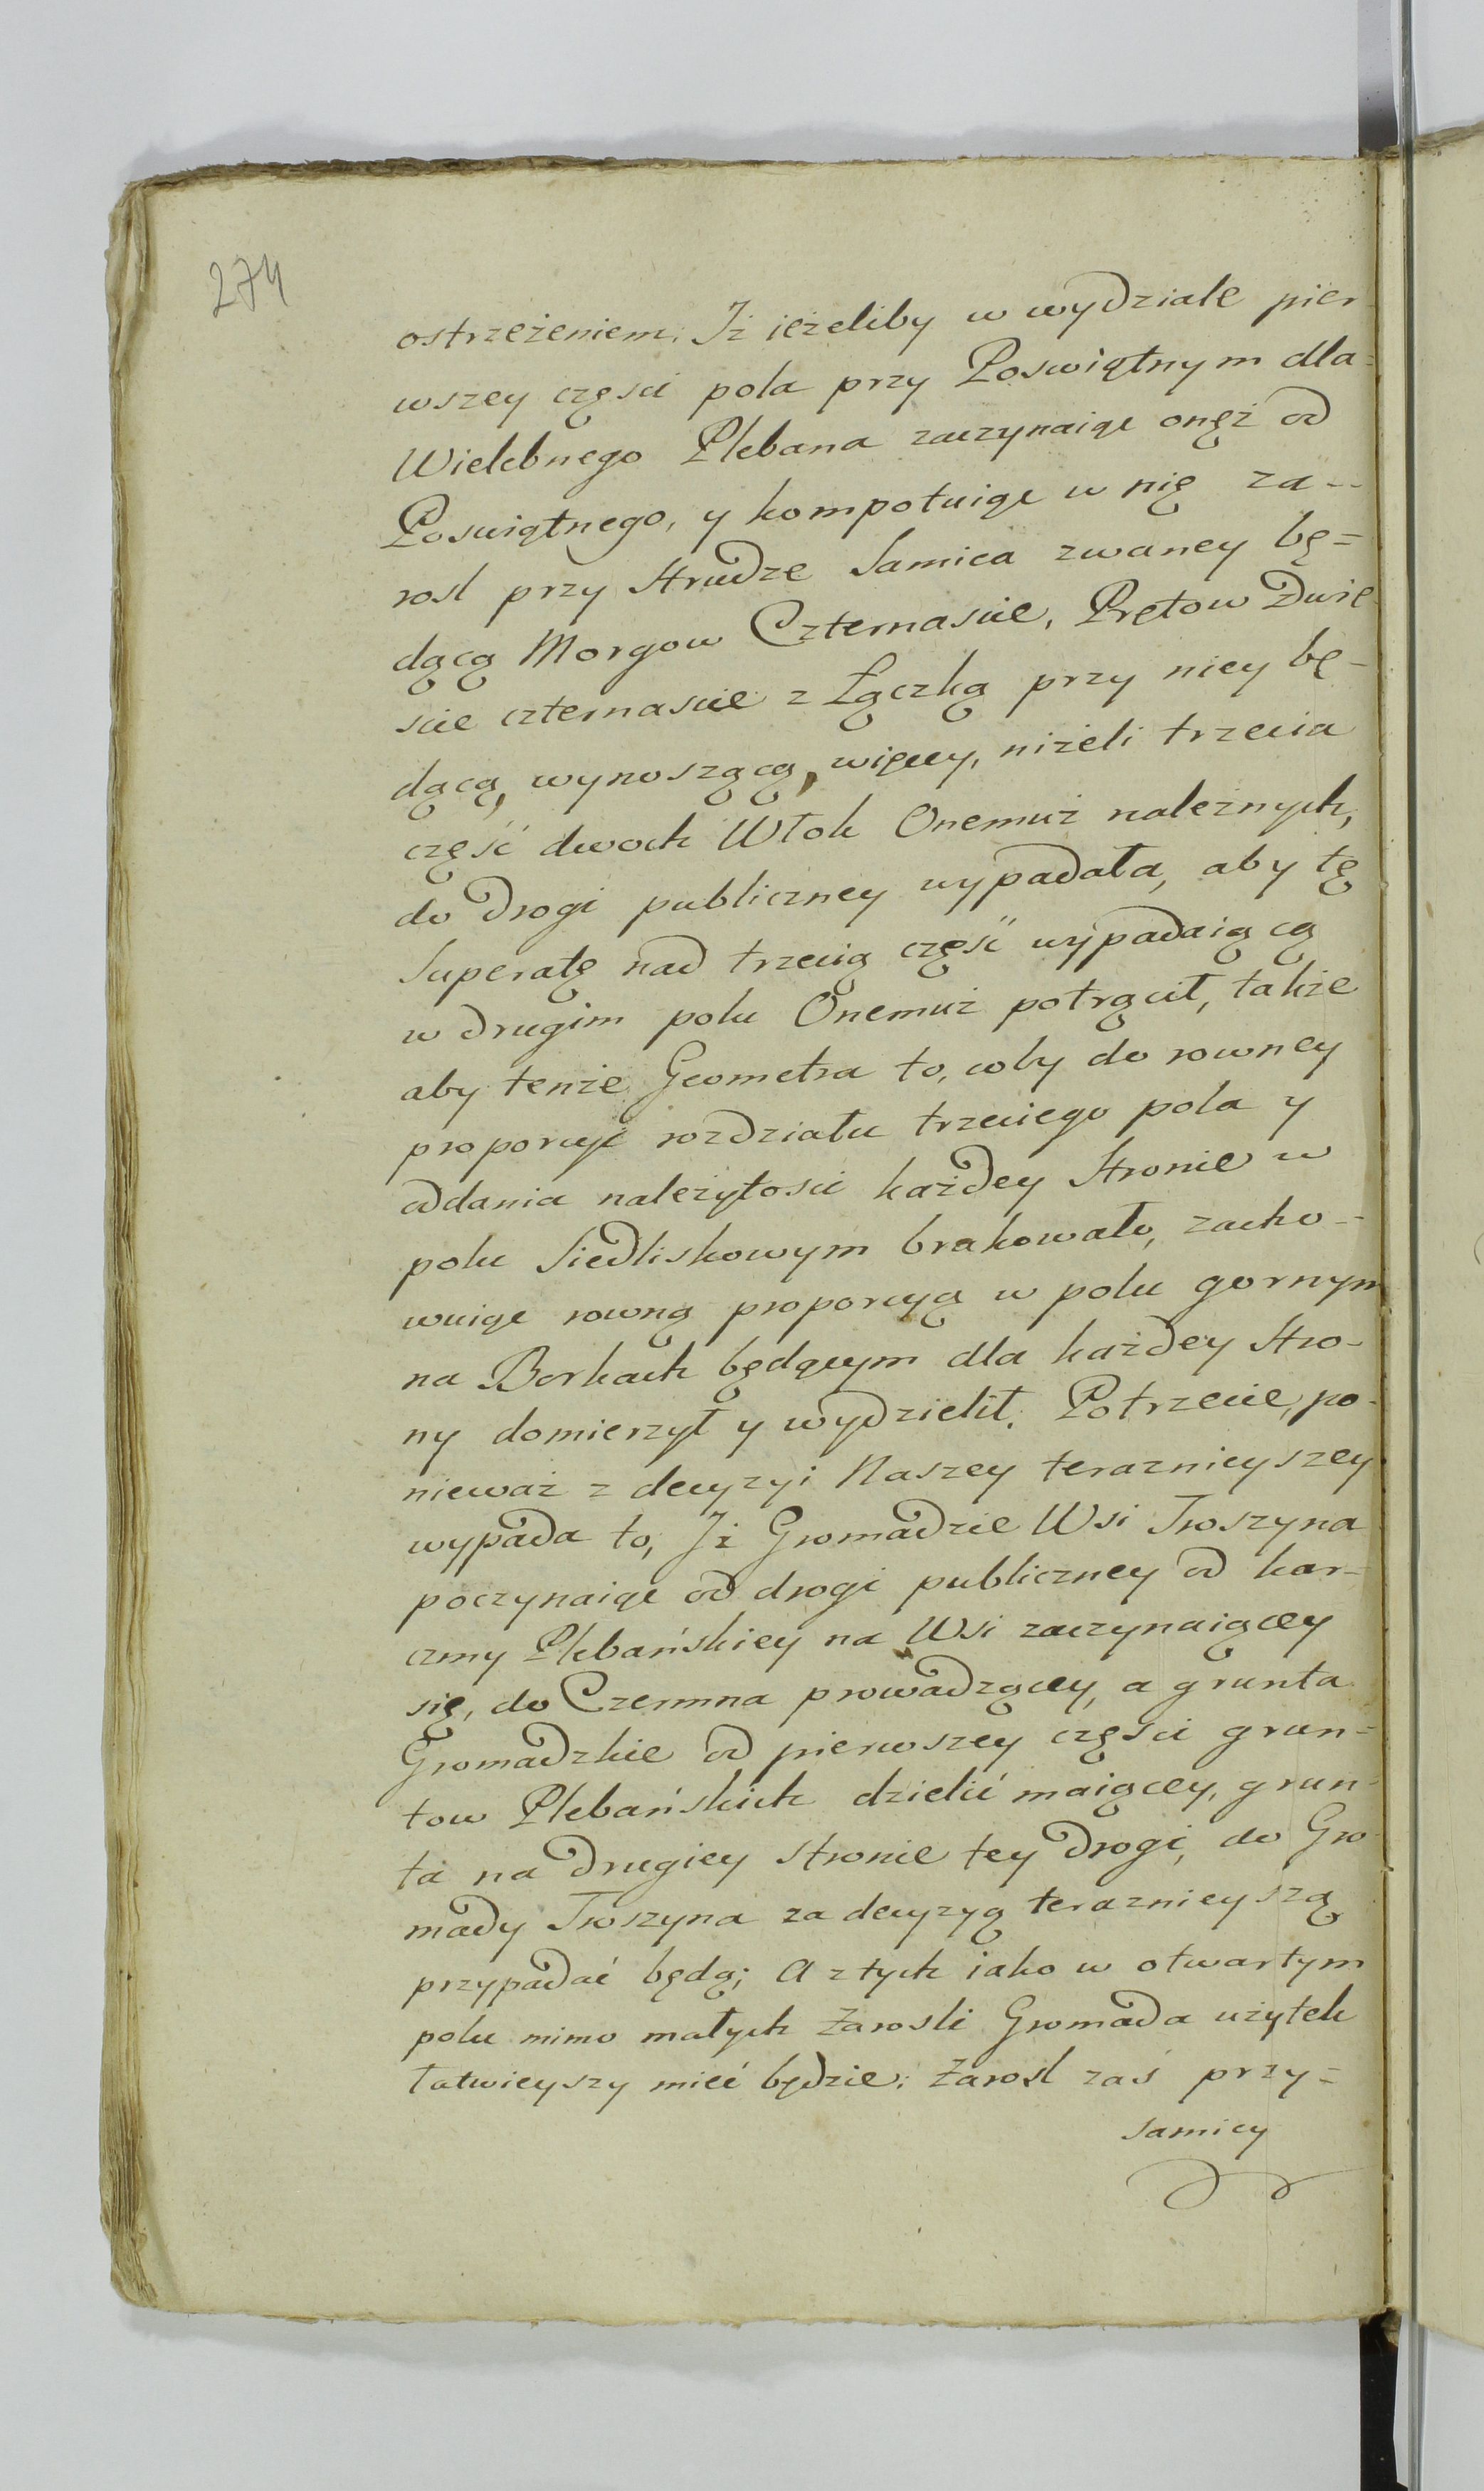 274
ostrzeżeniem: Iż ieżeliby w wydziale pier
wszey części pola przy Poswiątnym dla=
Wielebnego Plebana zaczynaiąc onęż od
Poswiątnego, y kompotuiąc w nię za--
rosl przy Strudze Samica zwaney bę=
dącą Morgow Czternascie, Prętow Dwie
scie czternascie z Łączką przy niey bę-
dącą, wynoszącą, więcey, niżeli trzecia
część dwoch Włok Onemuż należnych,
do drogi publiczney wypadała, aby tę
Superatę nad trzecią część wypadaiącą
w drugim polu Onemuż potrącił, także
aby tenże Geometra to, coby do rowney
proporcyi rozdziału trzeciego pola y
oddania należytosci każdey Stronie w
polu Siedliskowym brakowało, zacho-
wuiąc rowną proporcyą w polu gornym
na Borkach będącym dla każdey Stro-
ny domierzył y wydzielił. Potrzecie, po-
nieważ z decyzyi Naszey teraznieyszey
wypada to, Iż Gromadzie Wsi Troszyna
poczynaiąc od drogi publiczney od kar-
czmy Plebańskiey na Wsi zaczynaiącey
się, do Czermna prowadzącey, a grunta
Gromadzkie od pierwszey części grun=
tow Plebańskich dzielić maiącey, grun-
ta na drugiey stronie tey drogi, do Gro
mady Troszyna za decyzyą teraznieyszą
przypadać będą; A z tych iako w otwartym
polu mimo małych Zarosli Gromada użytek
łatwieyszy mieć będzie: Zarosl zaś przy=
samicy